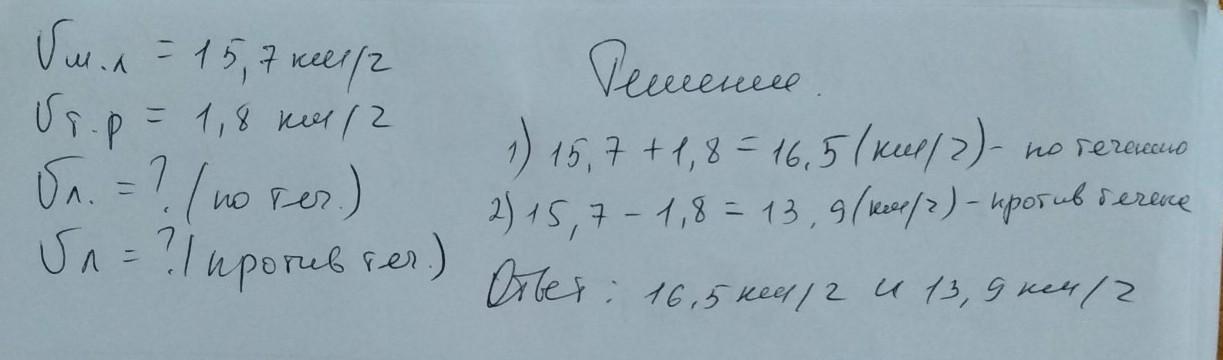 Vм.л = 15,7 км/ч
Vт.р = 1,8 км/ч
Vл. = ? (по теч.)
Vл = ? (против теч.)
Решение.
1) 15,7 + 1,8 = 16,5 (км/ч) - по течению
2) 15,7 - 1,8 = 13,9 (км/ч) - против течение
Ответ: 16,5 км/ч и 13,9 км/ч